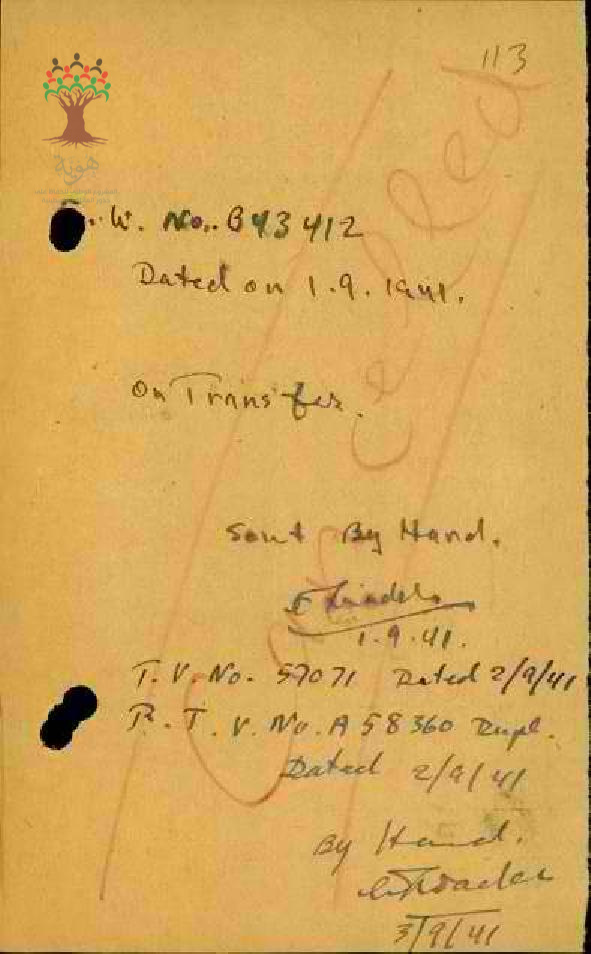 113
هوية
W. No. B43412
Dated on 1.9.1941.
On Transfer.
Sent By Hand.
1.9.41.
T.V. No. 57071 Dated 2/9/41
R.T.V. No. A 58360 Dupl.
Dated 2/9/41
By Hand.
3/9/41
Cancelled